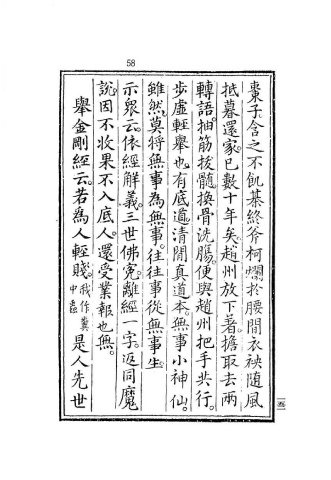 58
棗子含之不飢棊終斧柯爛於腰間衣袂隨風
抵暮還家已數十年矣趙州放下著擔取去兩
轉語抽筋拔髓換骨洗腸便與趙州把手共行
步虛輕舉也有底道清閒真道本無事小神仙
雖然莫將無事為無事往往事從無事生
示眾云依經解義三世佛冤離經一字返同魔
說因不收果不入底人還受業報也無
舉金剛經云若為人輕賤我作糞中蟲是人先世